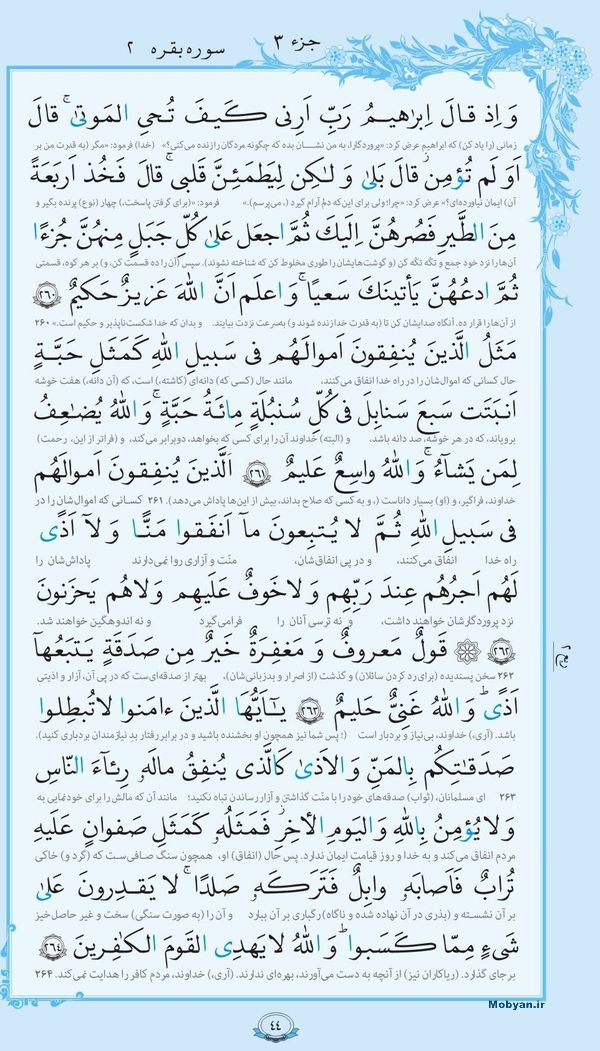 سوره بقره ۲
جزء ۳
وَ اِذ قالَ اِبراهیمُ رَبِّ اَرِنی کَیفَ تُحیِ المَوتیٰ ۚ قالَ
زمانی (را یاد کن) که ابراهیم عرض کرد: «پروردگارا، به من نشان بده که چگونه مردگان را زنده می‌کنی؟» (خدا) فرمود: «مگر (به قدرت من بر
اَوَ لَم تُؤمِن قالَ بَلیٰ وَ لٰکِن لِیَطمَئِنَّ قَلبی ۚ قالَ فَخُذ اَربَعَةً
آن) ایمان نیاورده‌ای؟» عرض کرد: «چرا؛ ولی برای این‌که دلم آرام گیرد (، می‌پرسم).» فرمود: «(برای گرفتن پاسخت،) چهار (نوع) پرنده بگیر و
مِنَ الطَّیرِ فَصُرهُنَّ اِلَیكَ ثُمَّ اجعَل عَلیٰ کُلِّ جَبَلٍ مِنهُنَّ جُزءًا
آن‌ها را نزد خود جمع و تکّه تکّه کن (و گوشت‌هایشان را طوری مخلوط کن که شناخته نشوند). سپس (آن را ده قسمت کن، و) بر هر کوه، قسمتی
ثُمَّ ادعُهُنَّ یَأتینَكَ سَعیًا ۚ وَ اعلَم اَنَّ اللهَ عَزیزٌ حَکیمٌ ﴿۲۶۰﴾
از آن‌ها را قرار ده. آنگاه صدایشان کن تا (به قدرت خدا زنده شوند و) به‌سرعت نزدت بیایند. و بدان که خدا شکست‌ناپذیر و حکیم است.» ۲۶۰
مَثَلُ الَّذینَ یُنفِقونَ اَموالَهُم فی سَبیلِ اللهِ کَمَثَلِ حَبَّةٍ
حال کسانی که اموال‌شان را در راه خدا انفاق می‌کنند، مانند حال (کسی که) دانه‌ای (کاشته،) است، که (آن دانه،) هفت خوشه
اَنبَتَت سَبعَ سَنابِلَ فی کُلِّ سُنبُلَةٍ مِائَةُ حَبَّةٍ ۗ وَ اللهُ یُضٰعِفُ
برویاند، که در هر خوشه، صد دانه باشد و (البته) خداوند آن را برای کسی که بخواهد، دوبرابر می‌کند، و (فراتر از این، رحمت)
لِمَن یَشاءُ ۚ وَ اللهُ واسِعٌ عَلیمٌ ﴿۲۶۱﴾ الَّذینَ یُنفِقونَ اَموالَهُم
خداوند، فراگیر، و (او) بسیار داناست (، و به کسی که صلاح بداند، بیش از این‌ها پاداش می‌دهد). ۲۶۱ کسانی که اموال‌شان را در
فی سَبیلِ اللهِ ثُمَّ لا یُتبِعونَ ما اَنفَقوا مَنًّا وَ لا اَذًی
راه خدا انفاق می‌کنند، و در پی انفاق‌شان، منّت و آزاری روا نمی‌دارند پاداش‌شان را
لَهُم اَجرُهُم عِندَ رَبِّهِم وَ لا خَوفٌ عَلَیهِم وَ لا هُم یَحزَنونَ
نزد پروردگارشان خواهند داشت، و نه ترسی آنان را فرامی‌گیرد و نه اندوهگین خواهند شد.
﴿۲۶۲﴾ قَولٌ مَعروفٌ وَ مَغفِرَةٌ خَیرٌ مِن صَدَقَةٍ یَتبَعُها
۲۶۲ سخن پسندیده (برای رد کردن سائلان) و گذشت (از اصرار و بدزبانی‌شان) بهتر از صدقه‌ای‌ست که در پی آن، آزار و اذیتی
اَذًی ۗ وَ اللهُ غَنِیٌّ حَلیمٌ ﴿۲۶۳﴾ یٰاَیُّهَا الَّذینَ ءامَنوا لا تُبطِلوا
باشد. (آری،) خداوند، بی‌نیاز و بردبار است (؛ پس شما نیز همچون او بخشنده باشید و در برابر رفتار بدِ نیازمندان بردباری کنید).
صَدَقٰتِکُم بِالمَنِّ وَ الاَذیٰ کَالَّذی یُنفِقُ مالَهٗ رِئاءَ النّاسِ
۲۶۳ ای مسلمانان، (ثواب) صدقه‌های خود را با منّت گذاشتن و آزار رساندن تباه نکنید؛ مانند آن که مالش را برای خودنمایی به
وَ لا یُؤمِنُ بِاللهِ وَ الیَومِ الآخِرِ ۖ فَمَثَلُهٗ کَمَثَلِ صَفوانٍ عَلَیهِ
مردم انفاق می‌کند و به خدا و روز قیامت ایمان ندارد. پس حال (انفاق) او، همچون سنگ صافی‌ست که (گرد و) خاکی
تُرابٌ فَاَصابَهٗ وابِلٌ فَتَرَکَهٗ صَلدًا ۖ لا یَقدِرونَ عَلیٰ
بر آن نشسته و (بذری در آن نهاده شده و ناگاه) رگباری بر آن ببارد و آن را (به صورت سنگی) سخت و غیر حاصل‌خیز
شَیءٍ مِمّا کَسَبوا ۗ وَ اللهُ لا یَهدِی القَومَ الکٰفِرینَ ﴿۲۶۴﴾
برجای گذارد. (ریاکاران نیز) از آنچه به دست می‌آورند، بهره‌ای ندارند. (آری،) خداوند، مردم کافر را هدایت نمی‌کند. ۲۶۴
۴۴
Mobyan.ir